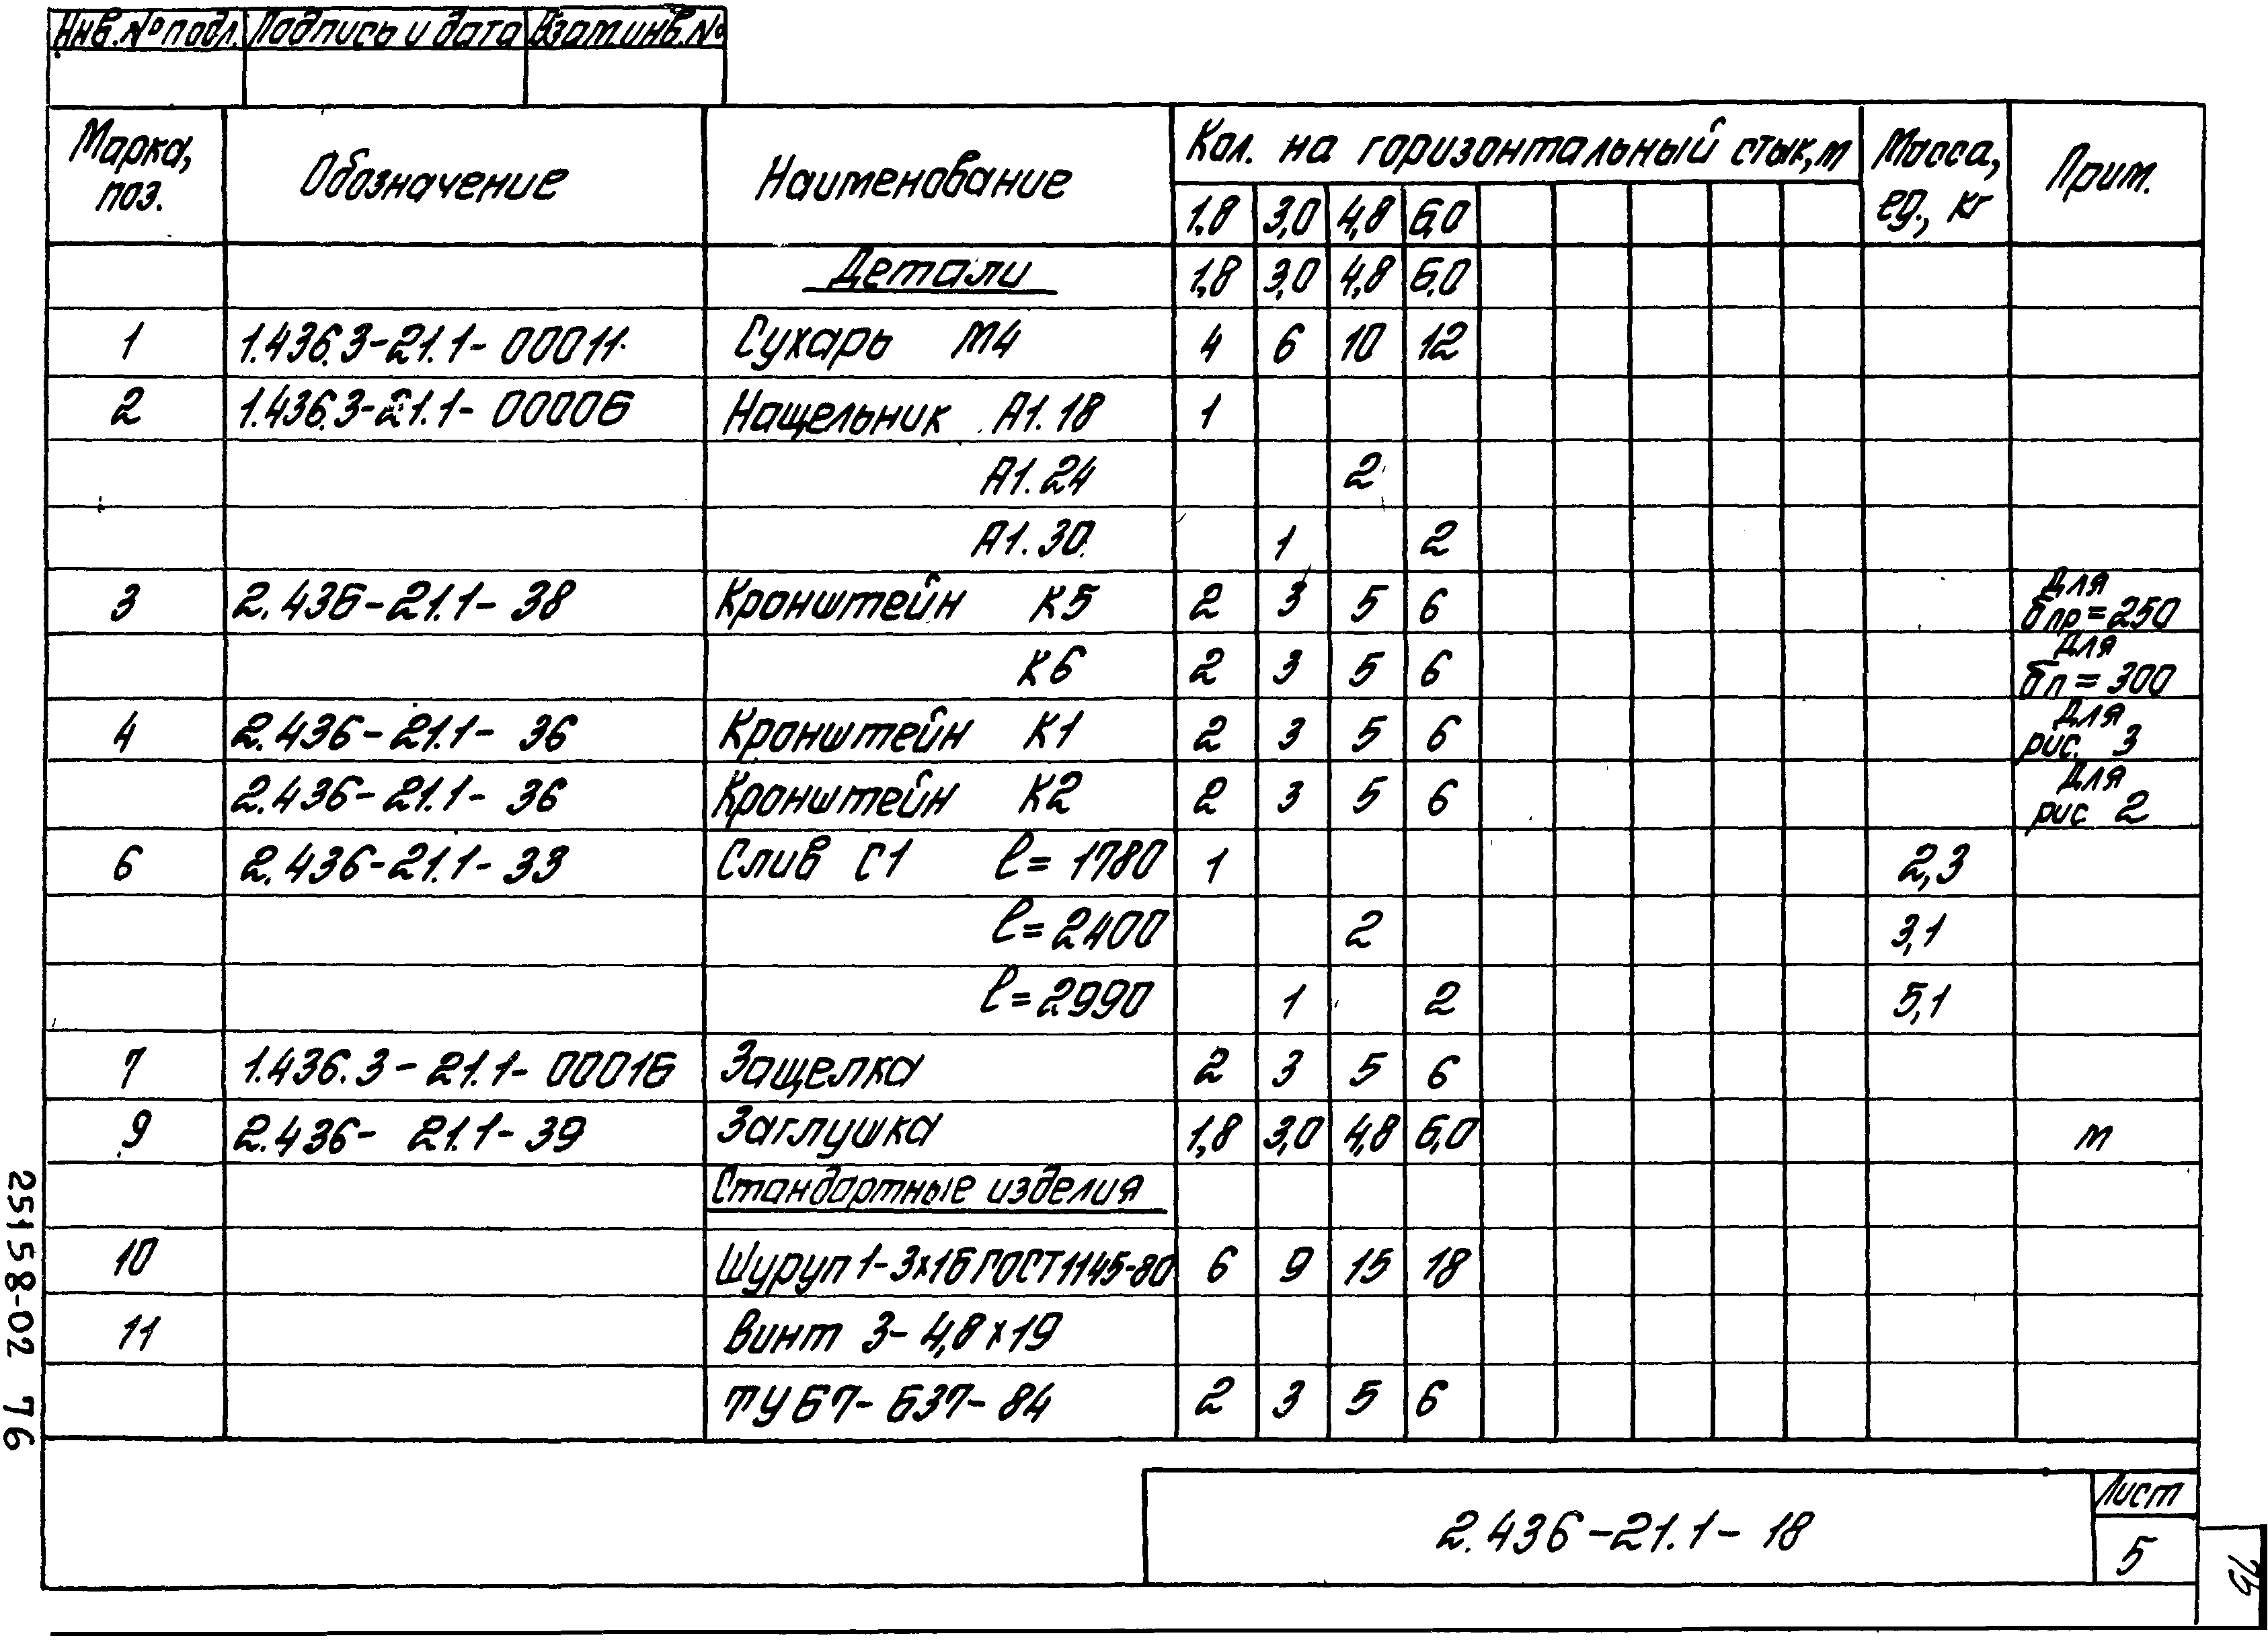 Инв. № подл. Подпись и дата Взам. инв. №
Марка, поз. Обозначение Наименование Кол. на горизонтальный стык, м Масса, ед., кг Прим.
1,8 3,0 4,8 6,0
Детали 1,8 3,0 4,8 6,0
1 1.436.3-21.1-00011 Сухарь М4 4 6 10 12
2 1.436.3-21.1-00006 Нащельник А1.18 1
А1.24 2
А1.30 1 2
3 2.436-21.1-38 Кронштейн К5 2 3 5 6 Для бпр=250
К6 2 3 5 6 Для бп=300
4 2.436-21.1-36 Кронштейн К1 2 3 5 6 Для рис. 3
2.436-21.1-36 Кронштейн К2 2 3 5 6 Для рис 2
6 2.436-21.1-33 Слив С1 ℓ=1780 1 2,3
ℓ=2400 2 3,1
ℓ=2990 1 2 5,1
7 1.436.3-21.1-00016 Защелка 2 3 5 6
9 2.436-21.1-39 Заглушка 1,8 3,0 4,8 6,0 м
Стандартные изделия
10 Шуруп 1-3×16 ГОСТ 1145-80 6 9 15 18
11 Винт 3-4,8×19
ТУ 67-637-84 2 3 5 6
2.436-21.1-18 Лист
5
25158-02 76
76